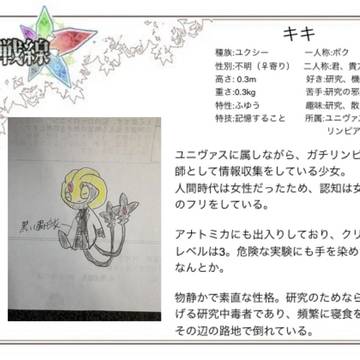 戦線
キキ
種族:ユクシー
一人称:ボク
性別:不明（♀寄り）
二人称:君、貴方
高さ: 0.3m
好き:研究、機
重さ:0.3kg
苦手:研究の邪
特性:ふゆう
趣味:研究、散
特技:記憶すること
所属:ユニヴァス
リンピア
ユニヴァスに属しながら、ガチリンピ
師として情報収集をしている少女。
人間時代は女性だったため、認知は女
のフリをしている。
アナトミカにも出入りしており、クリ
レベルは3。危険な実験にも手を染め
なんとか。
物静かで素直な性格。研究のためなら
げる研究中毒者であり、頻繁に寝食を
その辺の路地で倒れている。